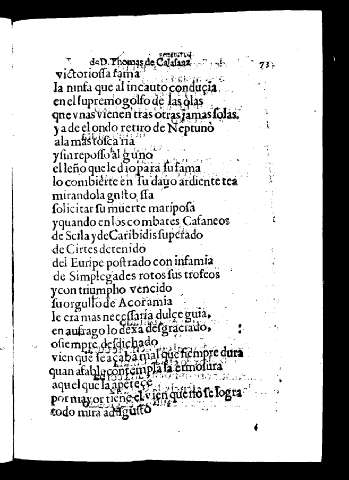 de D. Thomas de Casanaz 73
victoriossa fama
la ninfa que al incauto conduçia
en el supremo golfo de las olas
que vnas vienen tras otras jamas solas.
y a de el ondo retiro de Neptuno
a la mas tosca ria
y sin reposso alguno
el leño que le dio para su fama
lo combierte en su dayo ardiente tea
mirandola gusto ssa
solicitar su muerte mariposa
y quando en los combates Cafaneos
de Scila y de Caribidis superado
de Cirtes detenido
del Euripe postrado con infamia
de Simplegades rotos sus trofeos
y con triumpho vencido
su orgullo de Acoramia
le era mas necessaria dulce guia,
en aufrago lo dexa desgraciado,
o siempre desdichado
vien que se açaba mal que siempre dura
quan afable contempla la ermosura
aquel que la apeteçe
por mayor tiene el vien que no se logra
todo mira adgusto